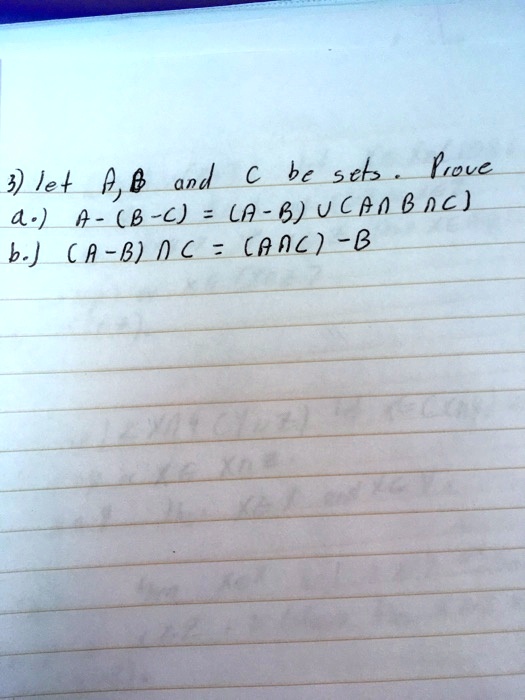 3) let A, B and C be sets. Prove
a.) A - (B - C) = (A - B) ∪ (A ∩ B ∩ C)
b.) (A - B) ∩ C = (A ∩ C) - B